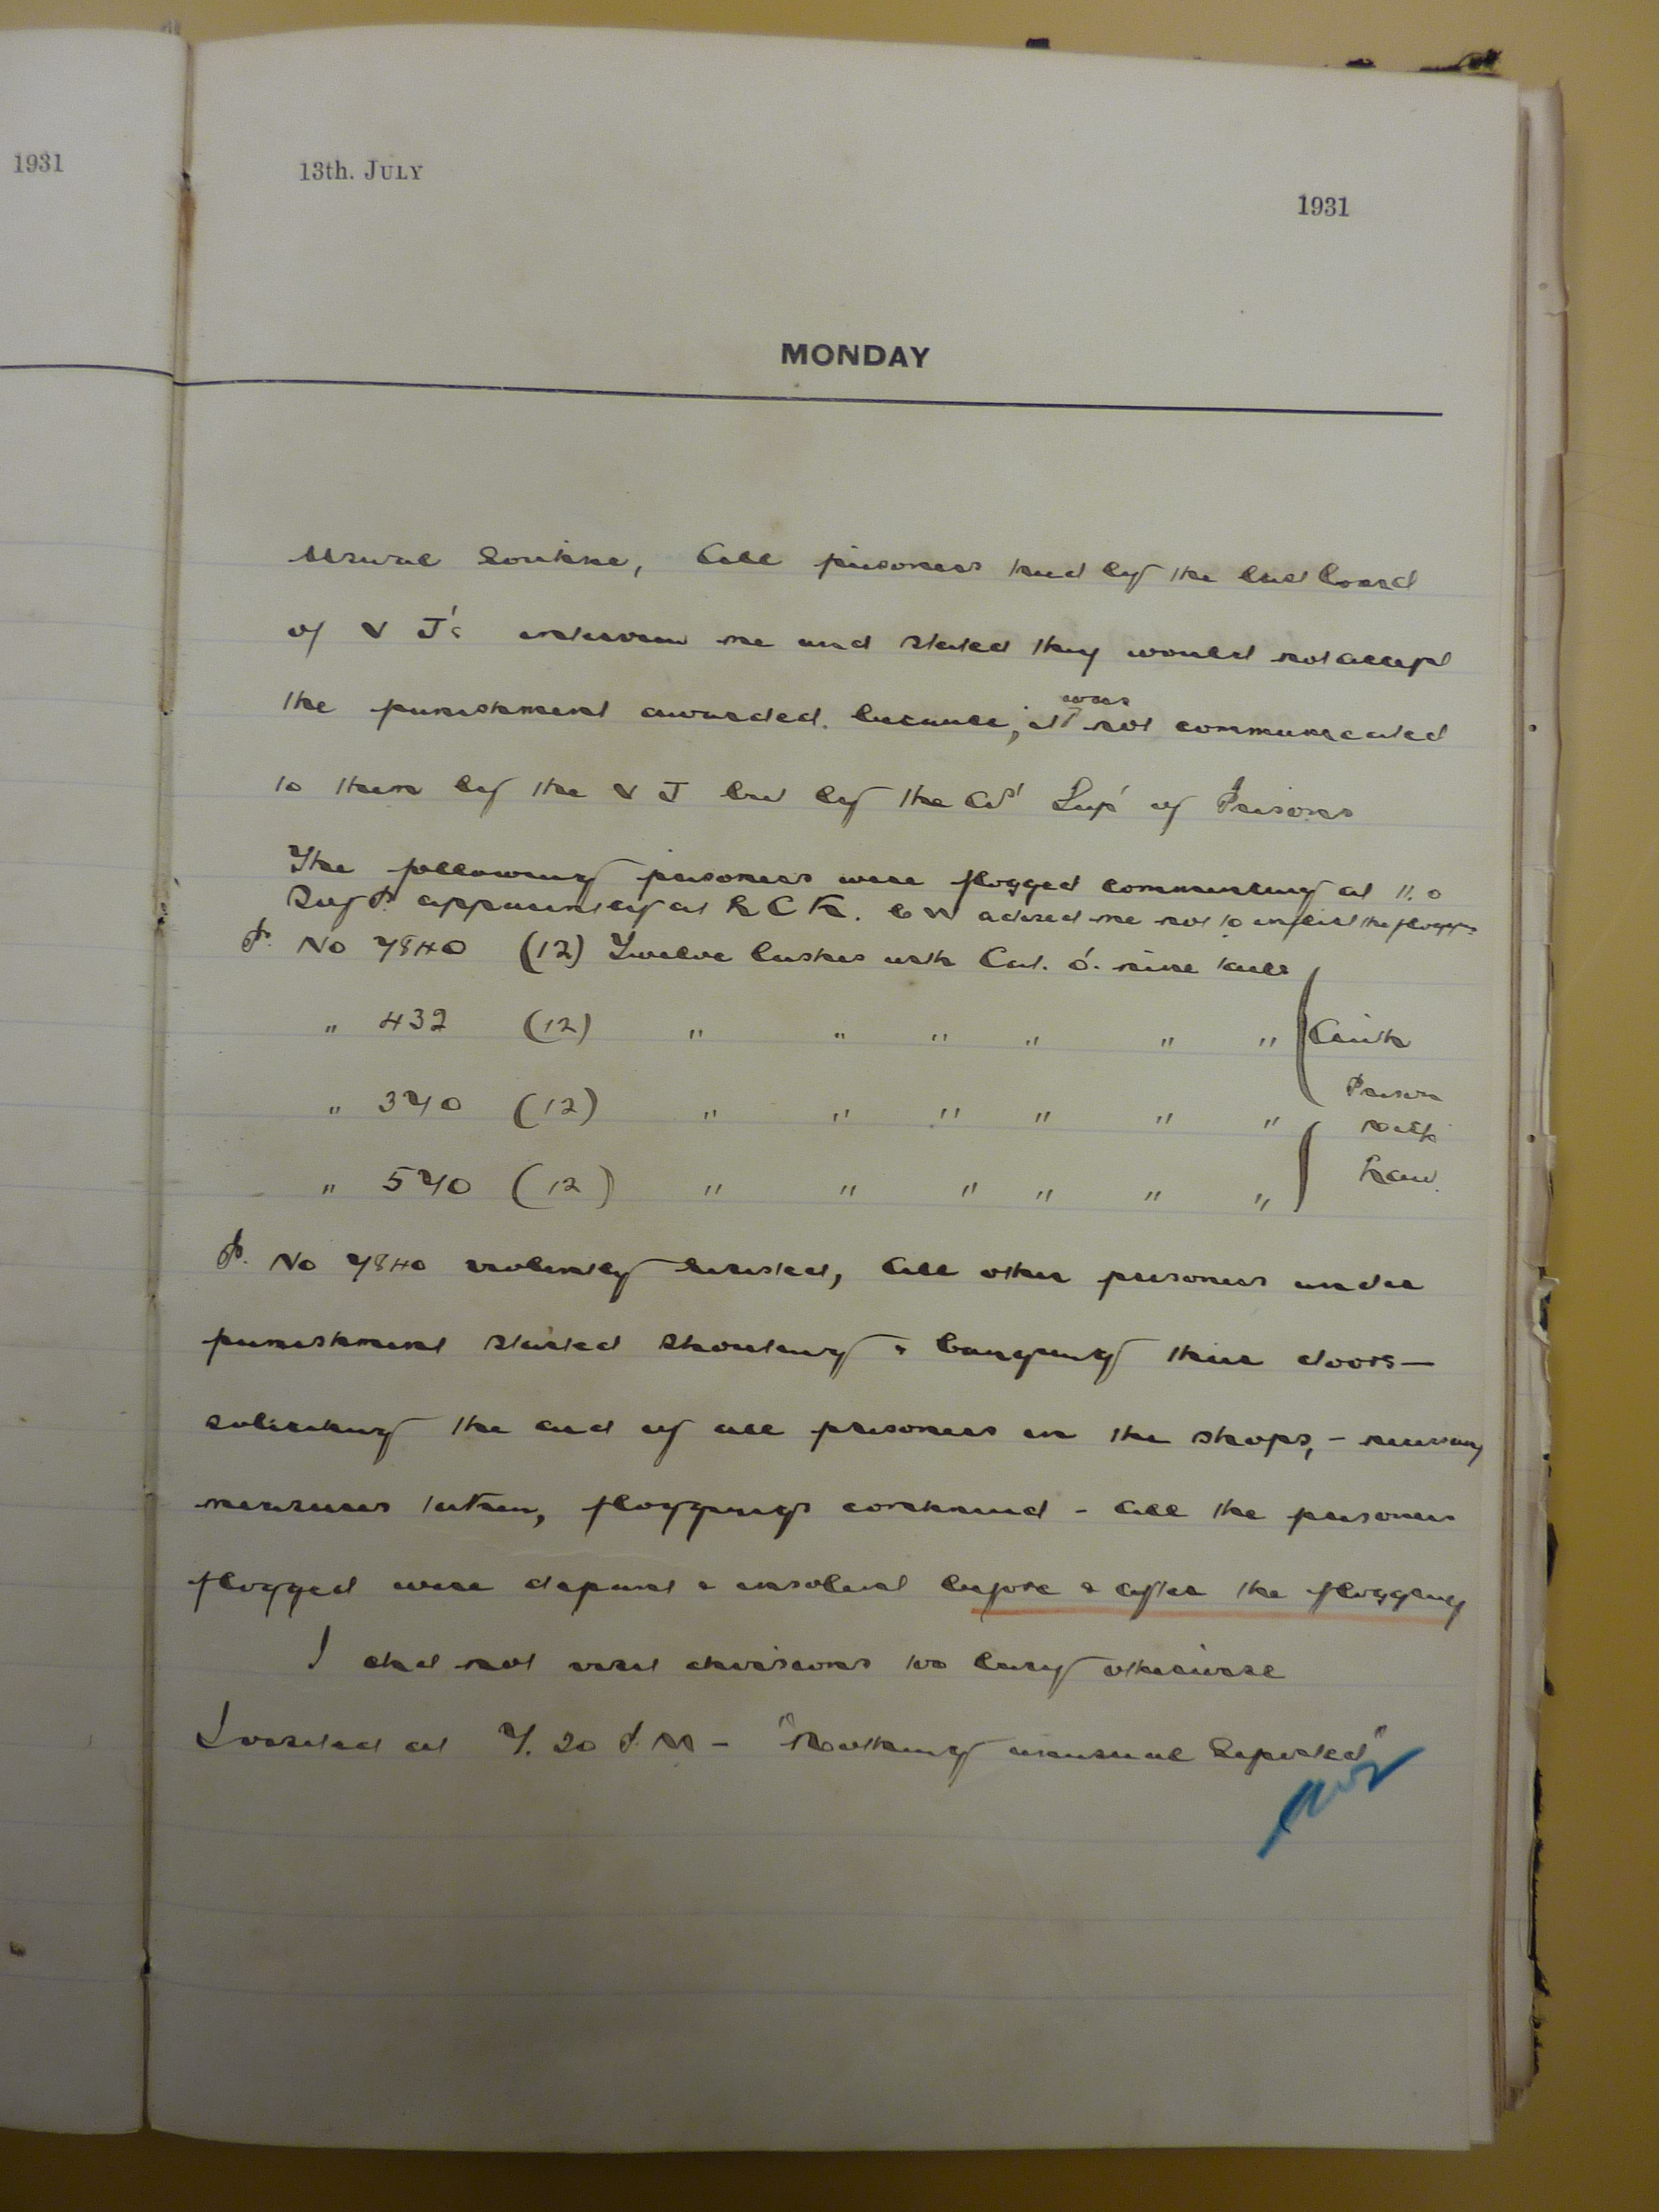 1931
13th. JULY
1931
MONDAY
Usual Routine, All prisoners tried by the last board
of V J's interview me and stated they would not accept
the punishment awarded. because, it was not communicated
to them by the V J but by the Supt of Prisons
The following prisoners were flogged commencing at 11.0
Supt apparently at advised me not to inflict the
P. No 7840 (12) Twelve lashes with Cat. o'. nine tails
" 432 (12) " " " " " "
" 370 (12) " " " " " "
Prison
" 570 (12) " " " " " "
P. No 7840 violently resisted, All other prisoners under
punishment started shouting & banging their doors—
soliciting the aid of all prisoners in the shops, – necessary
measures taken, floggings continued – All the prisoners
flogged were defiant & insolent before & after the flogging
I did not visit divisions too busy otherwise
I visited at 7.20 P.M – "Nothing unusual Reported"